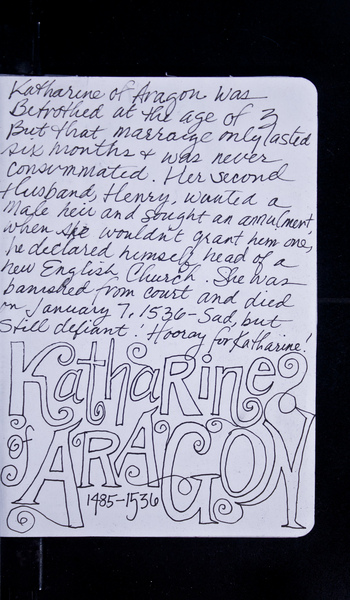 Katharine of Aragon was
Betrothed at the age of 3
But that marraige only lasted
six months & was never
consummated. Her second
Husband, Henry, wanted a
Male heir and sought an annulment
when she wouldn't grant him one,
he declared himself head of a
new English Church. She was
banished from court and died
on January 7, 1536 - Sad, but
Still defiant! Hooray for Katharine!
Katharine
of ARAGON
1485-1536